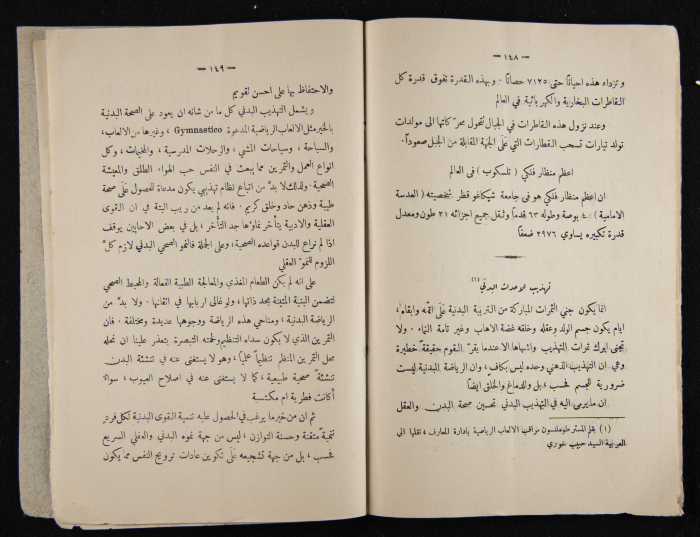 — ١٤٨ —
وتزداد هذه احيانًا حتى ٧١٢٥ حصانًا . وبهذه القدرة تفوق قدرة كل
القاطرات البخارية والكهربائية في العالم
وعند نزول هذه القاطرات في الجبال تتحول محركاتها الى مولدات
تولد تيارات تسحب القطارات التي على الجهة المقابلة من الجبل صعودًا.
اعظم منظار فلكي (تلسكوب) فى العالم
ان اعظم منظار فلكي هو فى جامعة شيكاغو قطر شخصيته (العدسة
الامامية) ٤٠ بوصة وطوله ٦٣ قدمًا وثقل جميع اجزائه ٢١ طون ومعدل
قدرة تكبيره يساوي ٢٩٧٦ ضعفًا
تهذيب الاحداث البدني (١)
انما يكون جني الثمرات المباركة من التربية البدنية على اتمّه وابقاه،
ايام يكون جسم الولد وعقله وخلقه غضة الاهاب وغير تامة النماء . ولا
تجنى ثمرات التهذيب واشهاها الا عندما يقرّ القوم حقيقة خطيرة
وهي ان التهذيب الذهني وحده ليس بكاف، وان الرياضة البدنية ليست
ضرورية للجسم فحسب ، بل وللدماغ والخلق ايضًا
ان ما يرمى اليه في التهذيب البدني تحسين صحة البدن والعقل
(١) بقلم المستر طومانسون مراقب الالعاب الرياضية بادارة المعارف ، نقلها الى
العربية السيد حبيب خوري
— ١٤٩ —
والاحتفاظ بها على احسن تقويم
ويشمل التهذيب البدني كل ما من شأنه ان يعود على الصحة البدنية
بالخير مثل الالعاب الرياضية المدعوة Gymnastico ، وغيرها من الالعاب،
والسباحة ، وسياحات المشي ، والرحلات المدرسية ، والمخيمات ، وكل
انواع العمل والتمرين مما يبعث في النفس حب الهواء الطلق والمعيشة
الصحية . ولذلك لا بدّ من اتباع نظام تهذيبي يكون مدعاة للحصول على صحة
طيبة وذهن حاد وخلق كريم . فانه لم يعد من ريب البتة في ان القوى
العقلية والادبية يتأخر نماؤها جد التأخر ، بل في بعض الاحايين يوقف
اذا لم نراع للبدن قواعده الصحية ، وعلى الجملة فالنمو الصحي البدني لازم كلّ
اللزوم للنموّ العقلي
على انه لم يكن الطعام المغذي والمعالجة الطبية الفعالة والمحيط الصحي
لتضمن البنية المتينة بمجرد ذاتها ، ولو غالى اربابها في اتقانها . ولا بدّ من
الرياضة البدنية ، ومناحي هذه الرياضة ووجوهها عديدة ومختلفة . فان
التمرين الذي لا يكون سداه التنظيم ولحمته التبصرة يتعذر علينا ان نحله
محل التمرين المنظم تنظيمًا علميًا ، وهو لا يستغنى عنه في تنشئة البدن
تنشئةً صحية طبيعية ، كما لا يستغنى عنه في اصلاح العيوب ، سواءً
أكانت فطرية ام مكتسبة
ثم ان من خير ما يرغب في الحصول عليه تنمية القوى البدنية لكل فرد
تنمية متقنة وحسنة التوازن ، ليس من جهة نموه البدني والعقلي السريع
فحسب ، بل من جهة تشجيعه على تكوين عادات ترويح النفس مما يكون